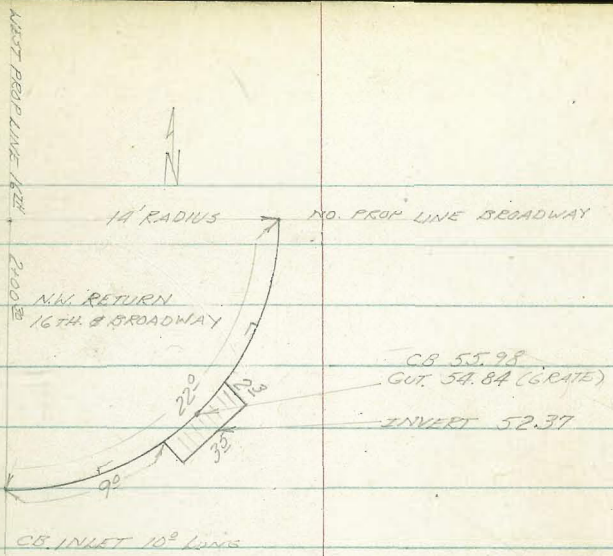 WEST PROP LINE 16TH
2+00⁰⁰
N
14' RADIUS
NO. PROP LINE BROADWAY
N.W. RETURN
16TH. & BROADWAY
CB 55.98
GUT. 54.84 (GRATE)
INVERT 52.37
22⁰
2¹³
3⁵
9⁰
CB. INLET 10⁰ LONG